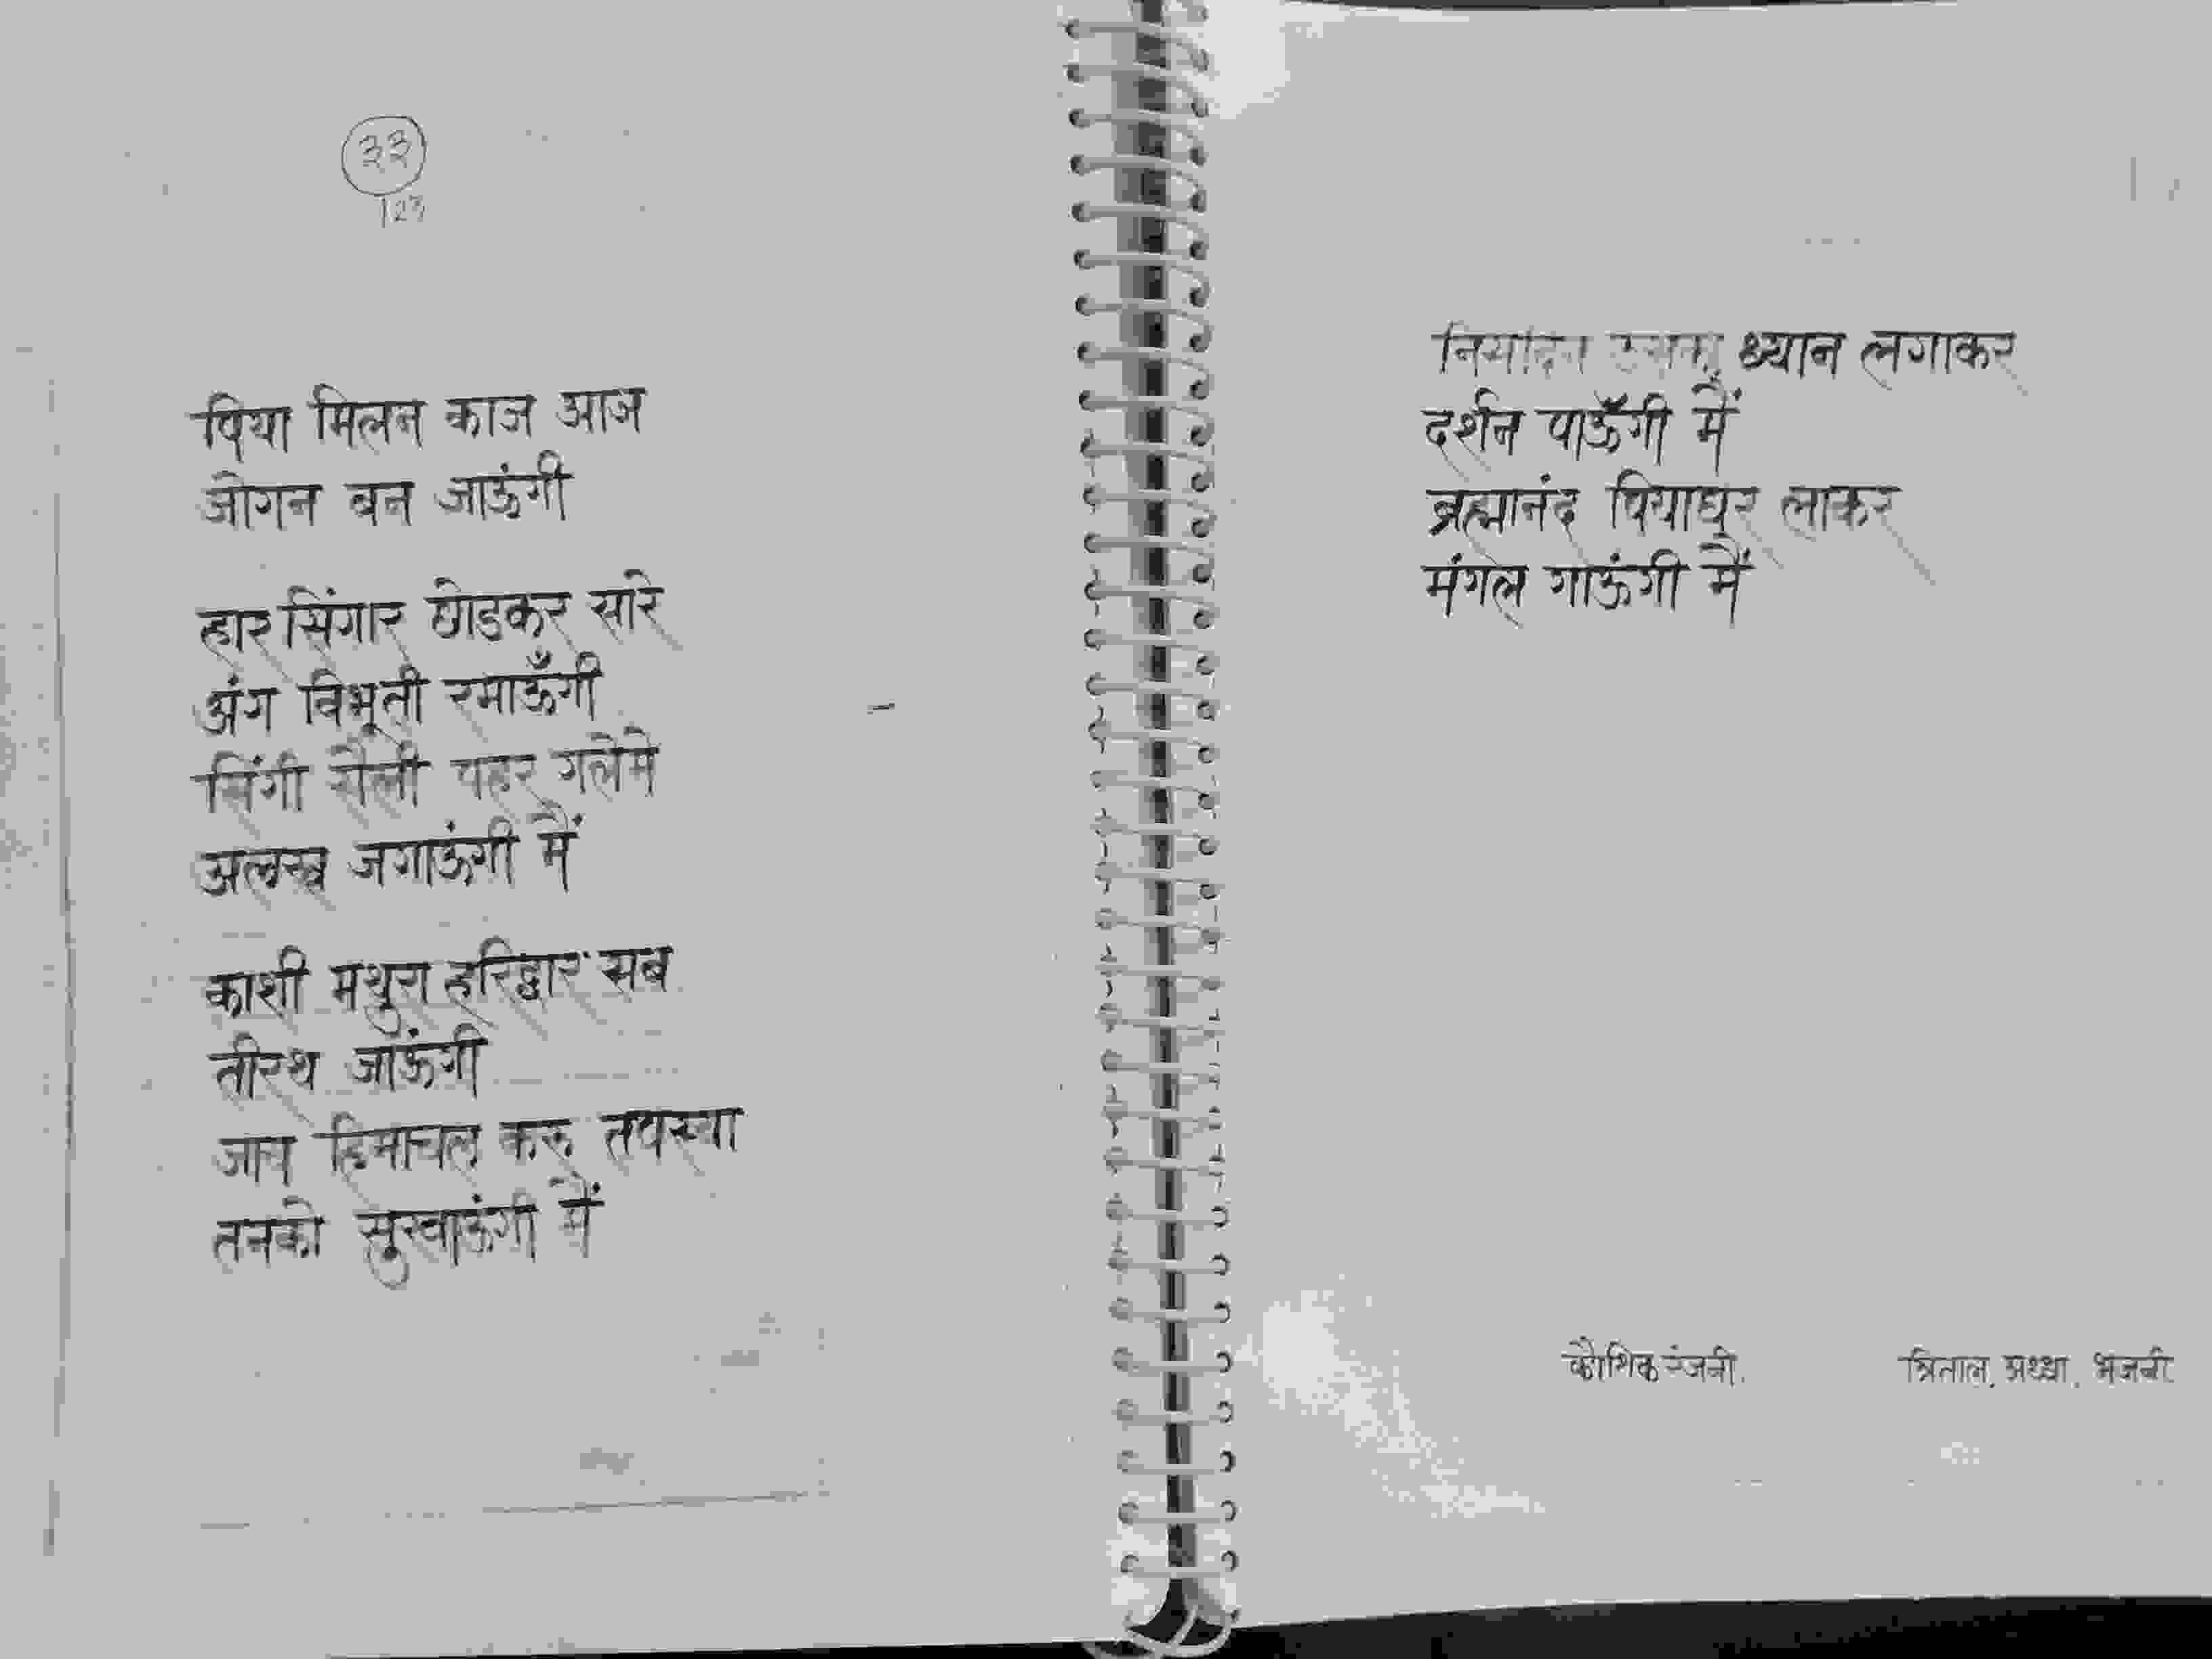 ३३
123
पिया मिलन काज आज
जोगन बन जाऊंगी
हार सिंगार छोडकर सारे
अंग विभूती रमाऊँगी
सिंगी सेली पहर गलेमे
अलख जगाऊंगी मैं
काशी मथुरा हरिद्वार सब
तीरथ जाऊंगी
जाय हिमाचल करु तपस्या
तनको सुखाऊंगी मैं
ध्यान लगाकर
दर्शन पाऊँगी मैं
ब्रह्मानंद पियाघर लाकर
मंगल गाऊंगी मैं
कौशिक रंजनी. त्रिताल, अध्धा, भजनी